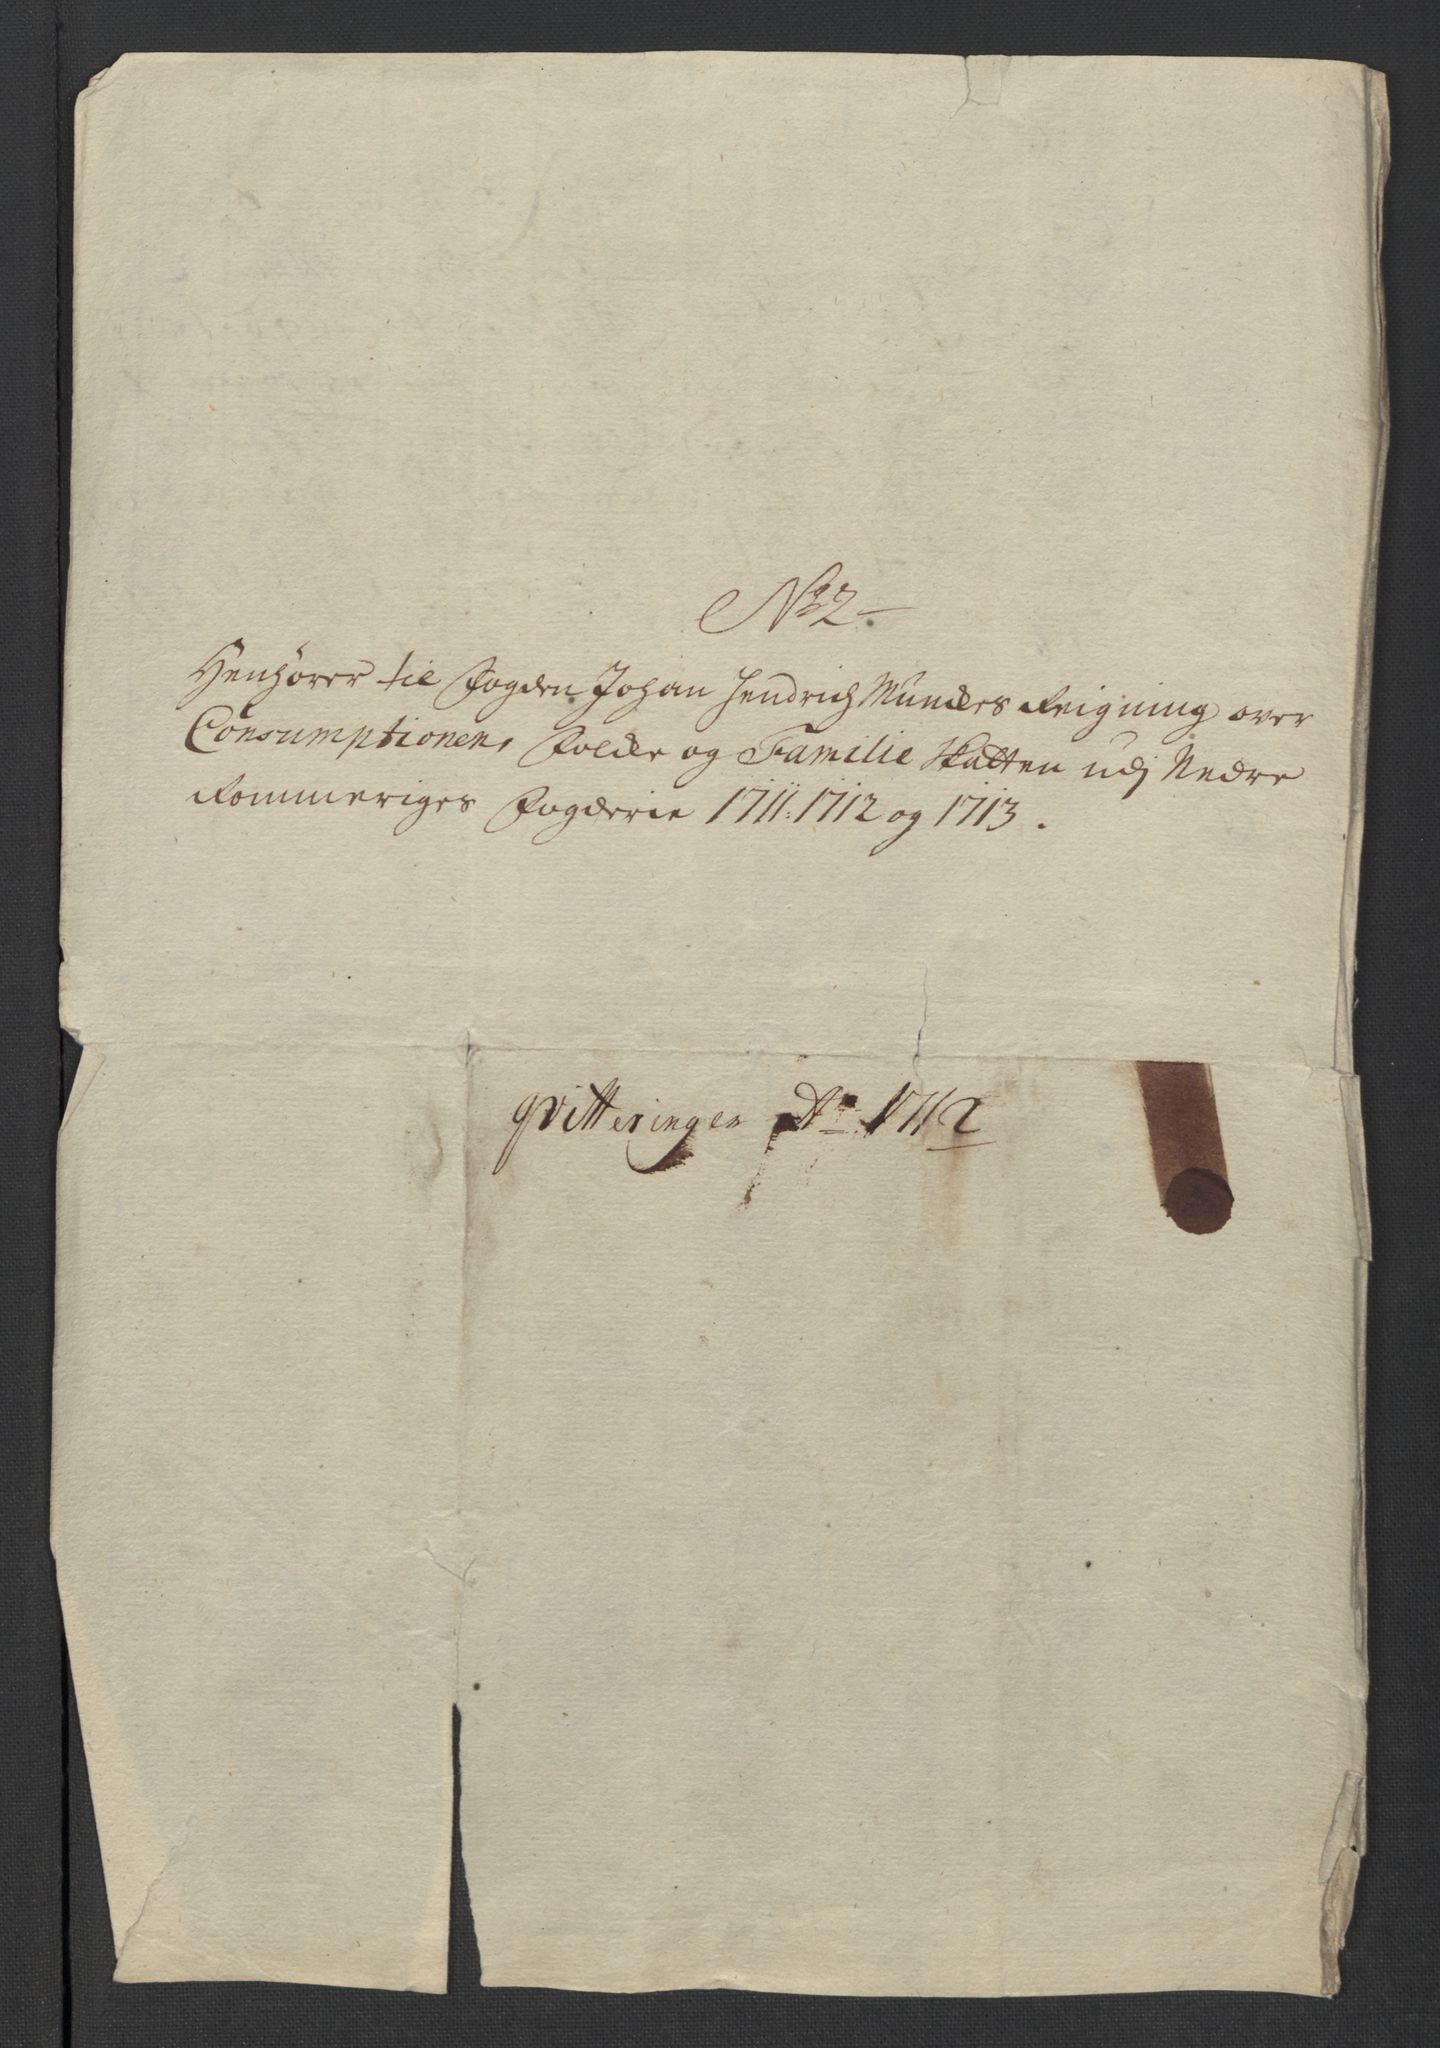 No 2
Henhörer til Fogden Johan Hendrich Munches Reigning over
Consumptionens Folche og Familie Skatten udj Nedre
Rommeriges Fogderie 1711: 1712 og 1713.
qvitteringer Ao 1712